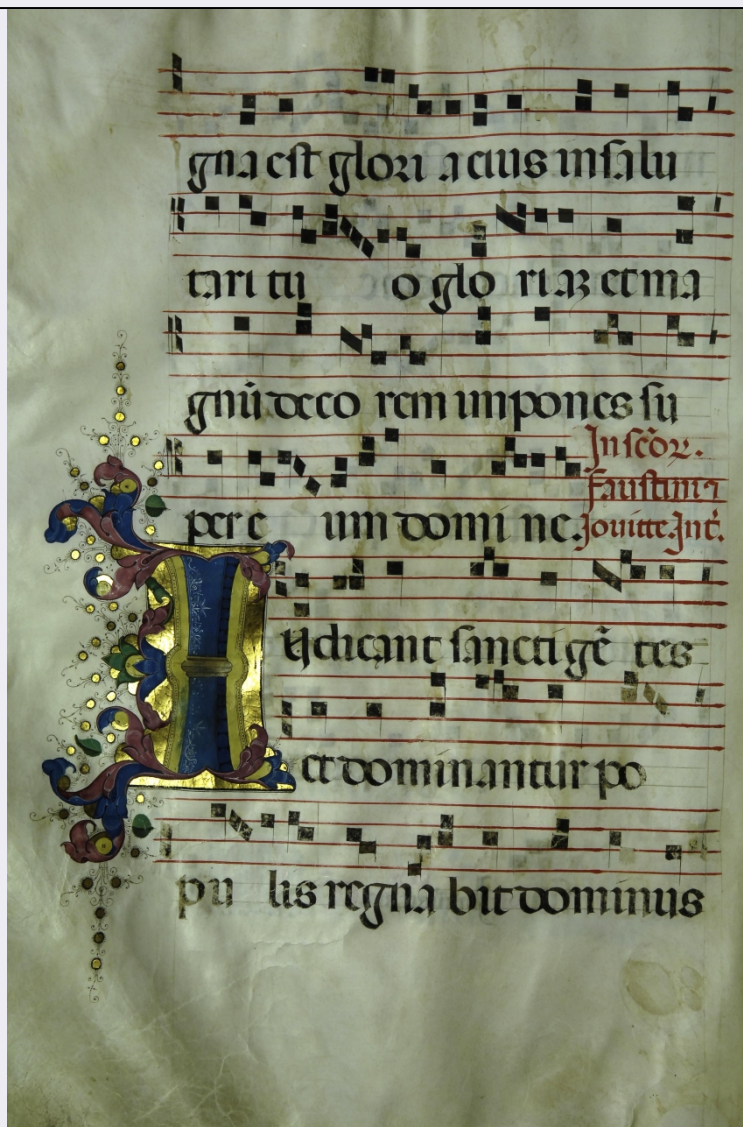 gna est glori a eius in salu
tari tu o glo ri aʒ et ma
gnū deco rem impones su
In scōꝝ.
Faustini ⁊
per e um domi ne. Iouitte. Int̄.
Iudicant sancti gē tes
et dominantur po
pu lis regna bit dominus